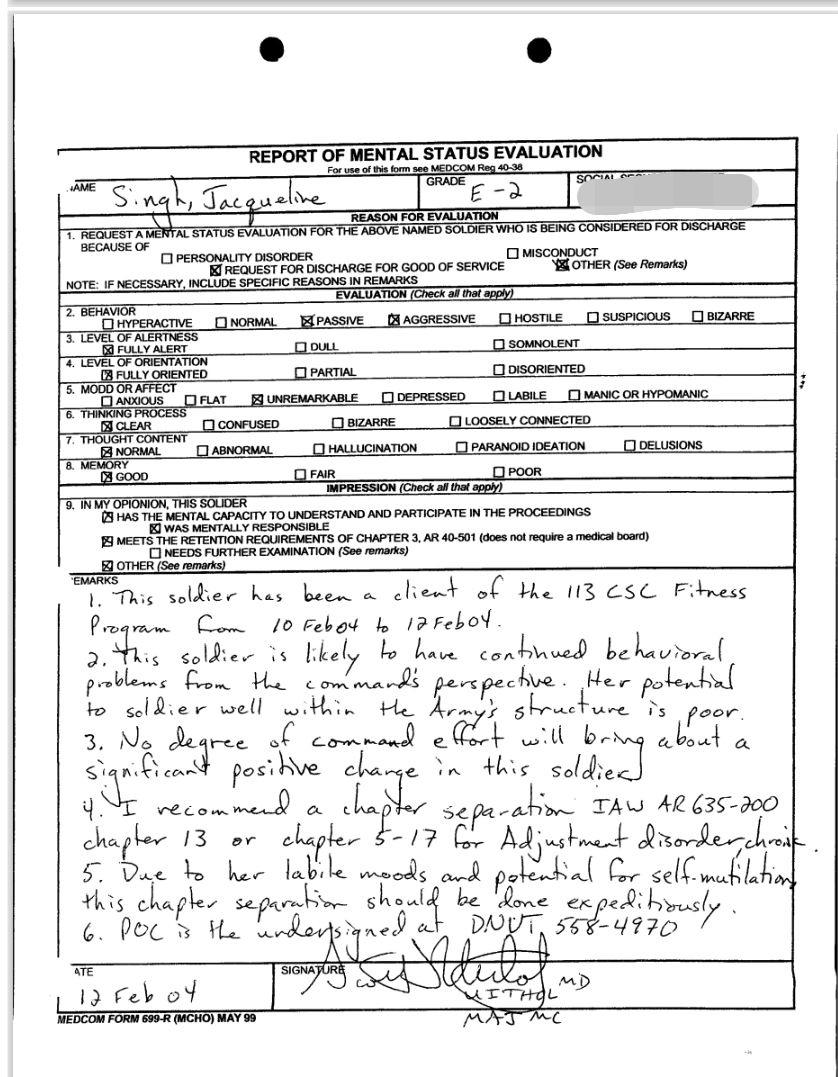 REPORT OF MENTAL STATUS EVALUATION
For use of this form see MEDCOM Reg 40-38
AME Singh, Jacqueline
GRADE E-2
REASON FOR EVALUATION
1. REQUEST A MENTAL STATUS EVALUATION FOR THE ABOVE NAMED SOLDIER WHO IS BEING CONSIDERED FOR DISCHARGE
BECAUSE OF
☐ PERSONALITY DISORDER ☐ MISCONDUCT
☒ REQUEST FOR DISCHARGE FOR GOOD OF SERVICE ☒ OTHER (See Remarks)
NOTE: IF NECESSARY, INCLUDE SPECIFIC REASONS IN REMARKS
EVALUATION (Check all that apply)
2. BEHAVIOR
☐ HYPERACTIVE ☐ NORMAL ☒ PASSIVE ☒ AGGRESSIVE ☐ HOSTILE ☐ SUSPICIOUS ☐ BIZARRE
3. LEVEL OF ALERTNESS
☒ FULLY ALERT ☐ DULL ☐ SOMNOLENT
4. LEVEL OF ORIENTATION
☒ FULLY ORIENTED ☐ PARTIAL ☐ DISORIENTED
5. MODD OR AFFECT
☐ ANXIOUS ☐ FLAT ☒ UNREMARKABLE ☐ DEPRESSED ☐ LABILE ☐ MANIC OR HYPOMANIC
6. THINKING PROCESS
☒ CLEAR ☐ CONFUSED ☐ BIZARRE ☐ LOOSELY CONNECTED
7. THOUGHT CONTENT
☒ NORMAL ☐ ABNORMAL ☐ HALLUCINATION ☐ PARANOID IDEATION ☐ DELUSIONS
8. MEMORY
☒ GOOD ☐ FAIR ☐ POOR
IMPRESSION (Check all that apply)
9. IN MY OPIONION, THIS SOLIDER
☒ HAS THE MENTAL CAPACITY TO UNDERSTAND AND PARTICIPATE IN THE PROCEEDINGS
☒ WAS MENTALLY RESPONSIBLE
☒ MEETS THE RETENTION REQUIREMENTS OF CHAPTER 3, AR 40-501 (does not require a medical board)
☐ NEEDS FURTHER EXAMINATION (See remarks)
☒ OTHER (See remarks)
EMARKS
1. This soldier has been a client of the 113 CSC Fitness
Program from 10 Feb 04 to 12 Feb 04.
2. This soldier is likely to have continued behavioral
problems from the command's perspective. Her potential
to soldier well within the Army's structure is poor.
3. No degree of command effort will bring about a
significant positive change in this soldier
4. I recommend a chapter separation IAW AR 635-200
chapter 13 or chapter 5-17 for Adjustment disorder, chronic.
5. Due to her labile moods and potential for self-mutilation,
this chapter separation should be done expeditiously.
6. POC is the undersigned at DNVT 558-4970
ATE
12 Feb 04
SIGNATURE
MD
MAJ MC
MEDCOM FORM 699-R (MCHO) MAY 99